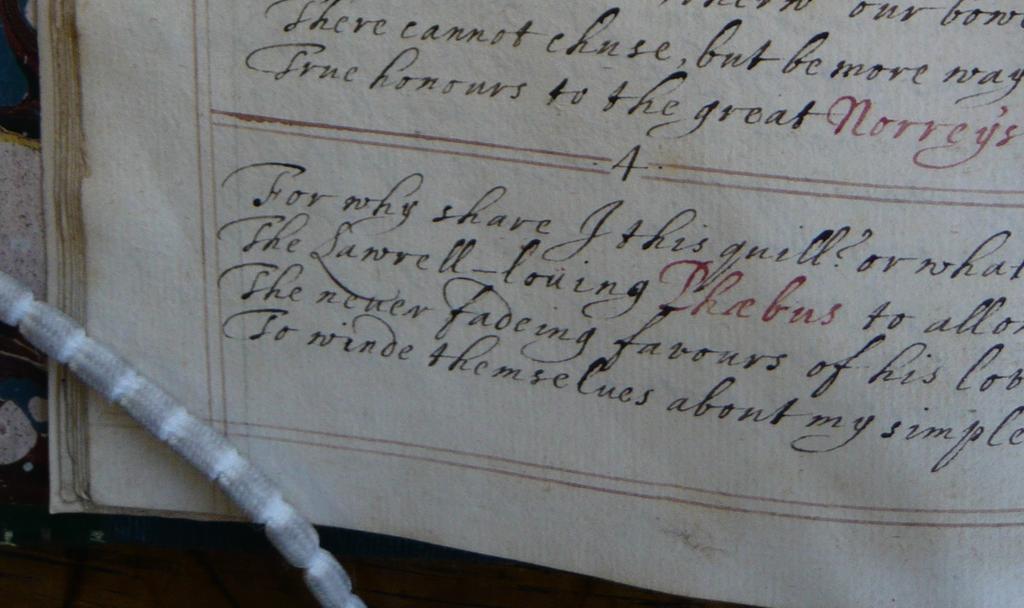 our
There cannot chuse, but be more way
True honours to the great Norreys
4
For why share I this quill? or what
The Lawrell-loving Phæbus to allo
The never fadeing favours of his lov
To winde themselves about my simple